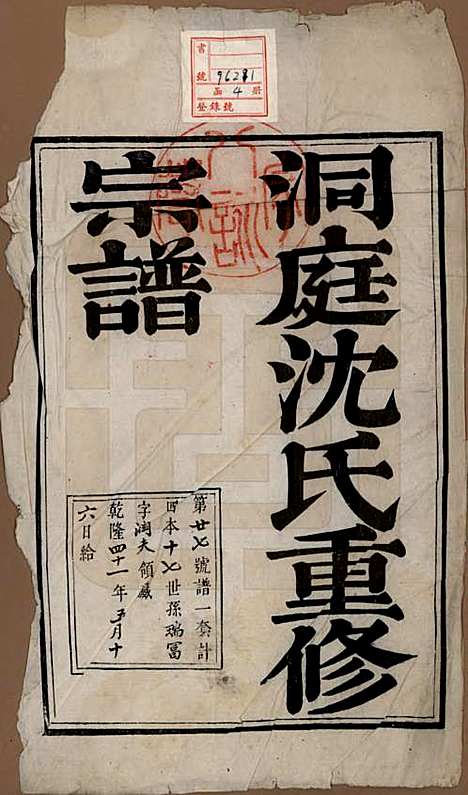 書
號 96281
函 4 册
登錄號
洞庭沈氏重修
宗譜
第廿七號譜一套計
四本十七世孫瑞冨
字潤夫領藏
乾隆四十一年五月十
六日給